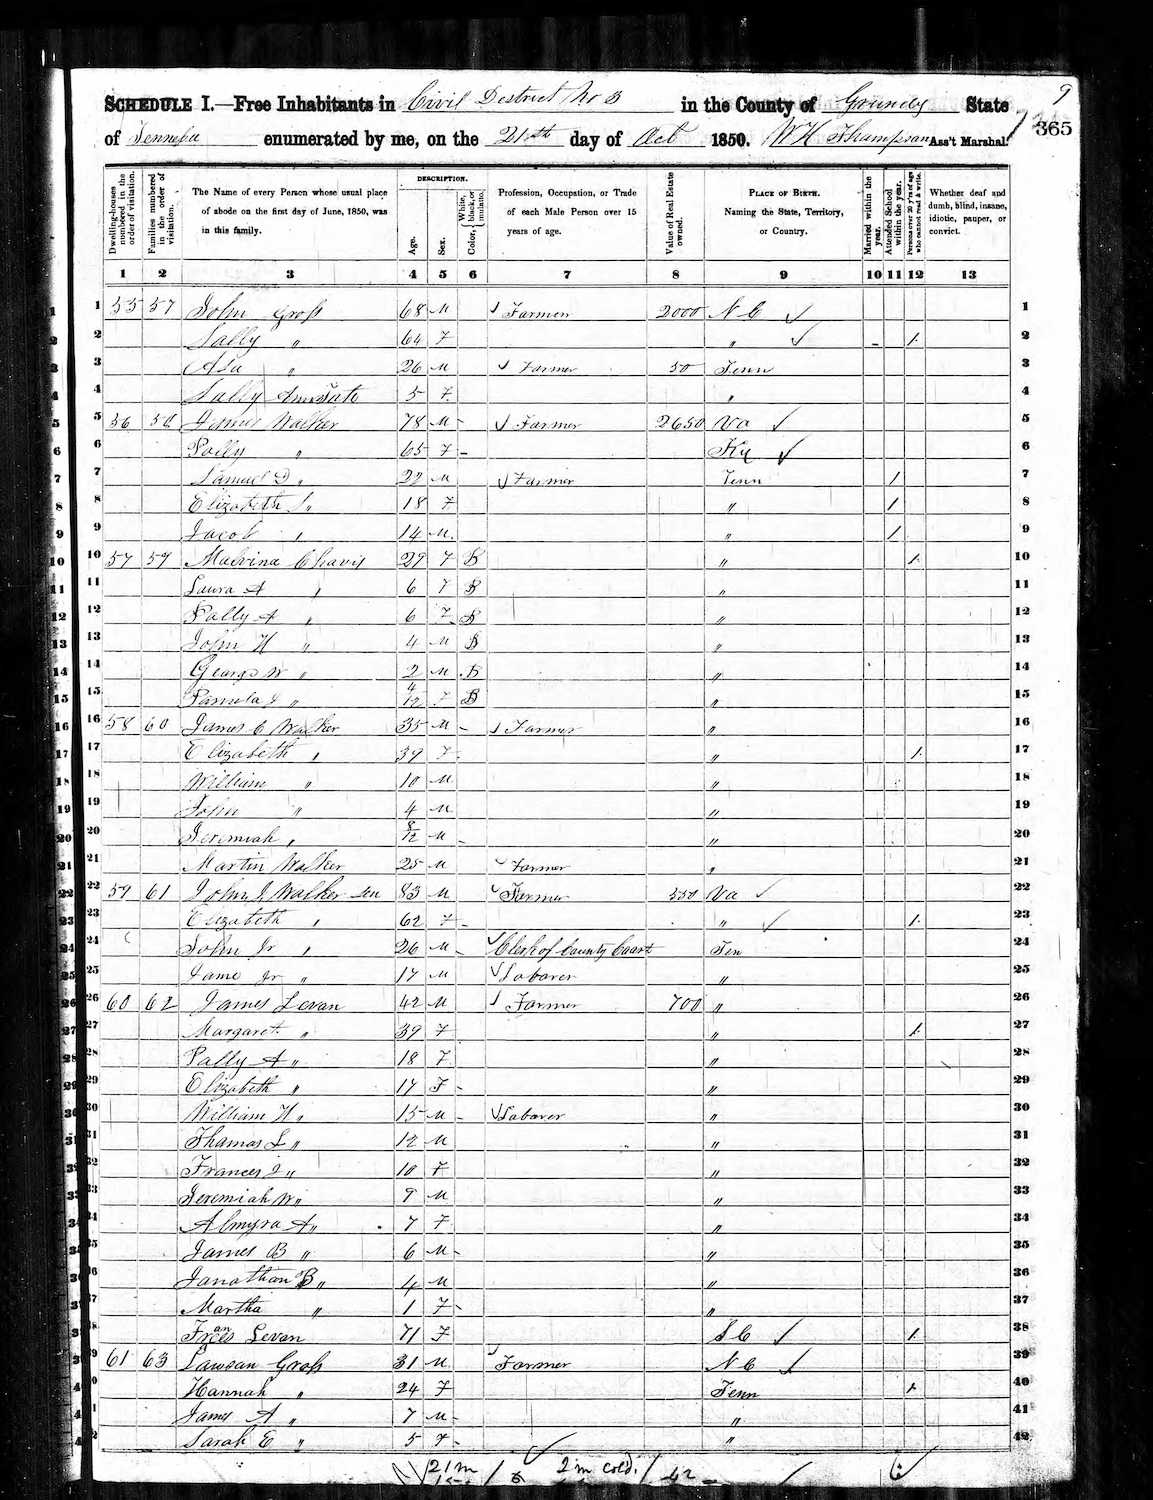 9
SCHEDULE I.—Free Inhabitants in Civil District No 3 in the County of Grundy State
365
of Tennessee enumerated by me, on the 21th day of Oct 1850. W H Thompson Ass't Marshal.
Dwelling-houses numbered in the order of visitation. Families numbered in the order of visitation. The Name of every Person whose usual place of abode on the first day of June, 1850, was in this family. DESCRIPTION. Age. Sex. Color, White, black, or mulatto. Profession, Occupation, or Trade of each Male Person over 15 years of age. Value of Real Estate owned. PLACE OF BIRTH. Naming the State, Territory, or Country. Married within the year. Attended School within the year. Persons over 20 y'rs of age who cannot read & write. Whether deaf and dumb, blind, insane, idiotic, pauper, or convict.
1 2 3 4 5 6 7 8 9 10 11 12 13
1 55 57 John Gross 68 M Farmer 2000 N C ✓ 1
2 Sally " 64 F " ✓ 1 2
3 Asa " 26 M Farmer 50 Tenn 3
4 Sally Ann Tate 5 F " 4
5 56 58 James Walker 78 M Farmer 2650 Va ✓ 5
6 Polly " 65 F Ky ✓ 6
7 Samuel D " 22 M Farmer Tenn 1 7
8 Elizabeth S " 18 F " 1 8
9 Jacob " 14 M " 1 9
10 57 59 Malvina Chavis 29 F B " 1 10
11 Laura A " 6 F B " 11
12 Polly A " 6 F B " 12
13 John H " 4 M B " 13
14 George W " 2 M B " 14
15 Pamela J " 4/12 F B " 15
16 58 60 James C Walker 35 M Farmer " 16
17 Elizabeth " 39 F " 1 17
18 William " 10 M " 18
19 John " 4 M " 19
20 Jeremiah " 8/12 M " 20
21 Martin Walker 25 M Farmer " 21
22 59 61 John J Walker Sen 83 M Farmer 550 Va ✓ 22
23 Elizabeth " 62 F " ✓ 1 23
24 John Jr " 26 M Clerk of County Court Ten 24
25 Jame Jr " 17 M Laborer " 25
26 60 62 James Levan 42 M Farmer 700 " 26
27 Margaret " 39 F " 1 27
28 Polly A " 18 F " 28
29 Elizabeth " 17 F " 29
30 William H " 15 M Laborer " 30
31 Thomas L " 12 M " 31
32 Frances J " 10 F " 32
33 Jeremiah W " 9 M " 33
34 Almyra A " 7 F " 34
35 James B " 6 M " 35
36 Janathan B " 4 M " 36
37 Martha " 1 F " 37
38 Frances Levan 71 F S C ✓ 1 38
39 61 63 Lawsan Gross 31 M Farmer N C ✓ 39
40 Hannah " 24 F Tenn 1 40
41 James A " 7 M " 41
42 Sarah E " 5 F " 42
21 m 2 m cold. 42 6